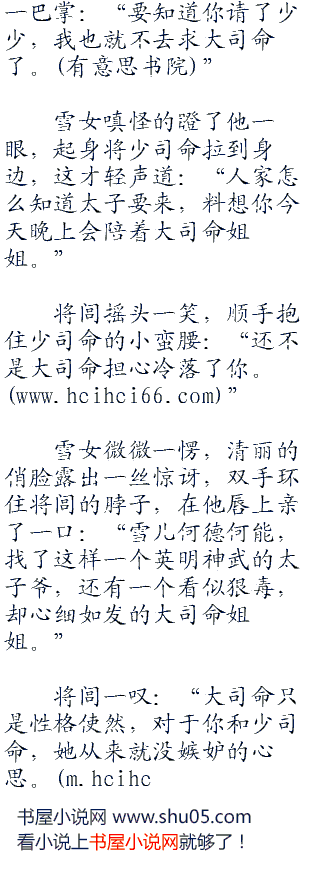 一巴掌：“要知道你请了少
少，我也就不去求大司命
了。(有意思书院)”
雪女嗔怪的瞪了他一
眼，起身将少司命拉到身
边，这才轻声道：“人家怎
么知道太子要来，料想你今
天晚上会陪着大司命姐
姐。”
将闾摇头一笑，顺手抱
住少司命的小蛮腰：“还不
是大司命担心冷落了你。
(www.hcihci66.com)”
雪女微微一愣，清丽的
俏脸露出一丝惊讶，双手环
住将闾的脖子，在他唇上亲
了一口：“雪儿何德何能，
找了这样一个英明神武的太
子爷，还有一个看似狠毒，
却心细如发的大司命姐
姐。”
将闾一叹：“大司命只
是性格使然，对于你和少司
命，她从来就没嫉妒的心
思。(m.hcihc
书屋小说网 www.shu05.com
看小说上书屋小说网就够了！